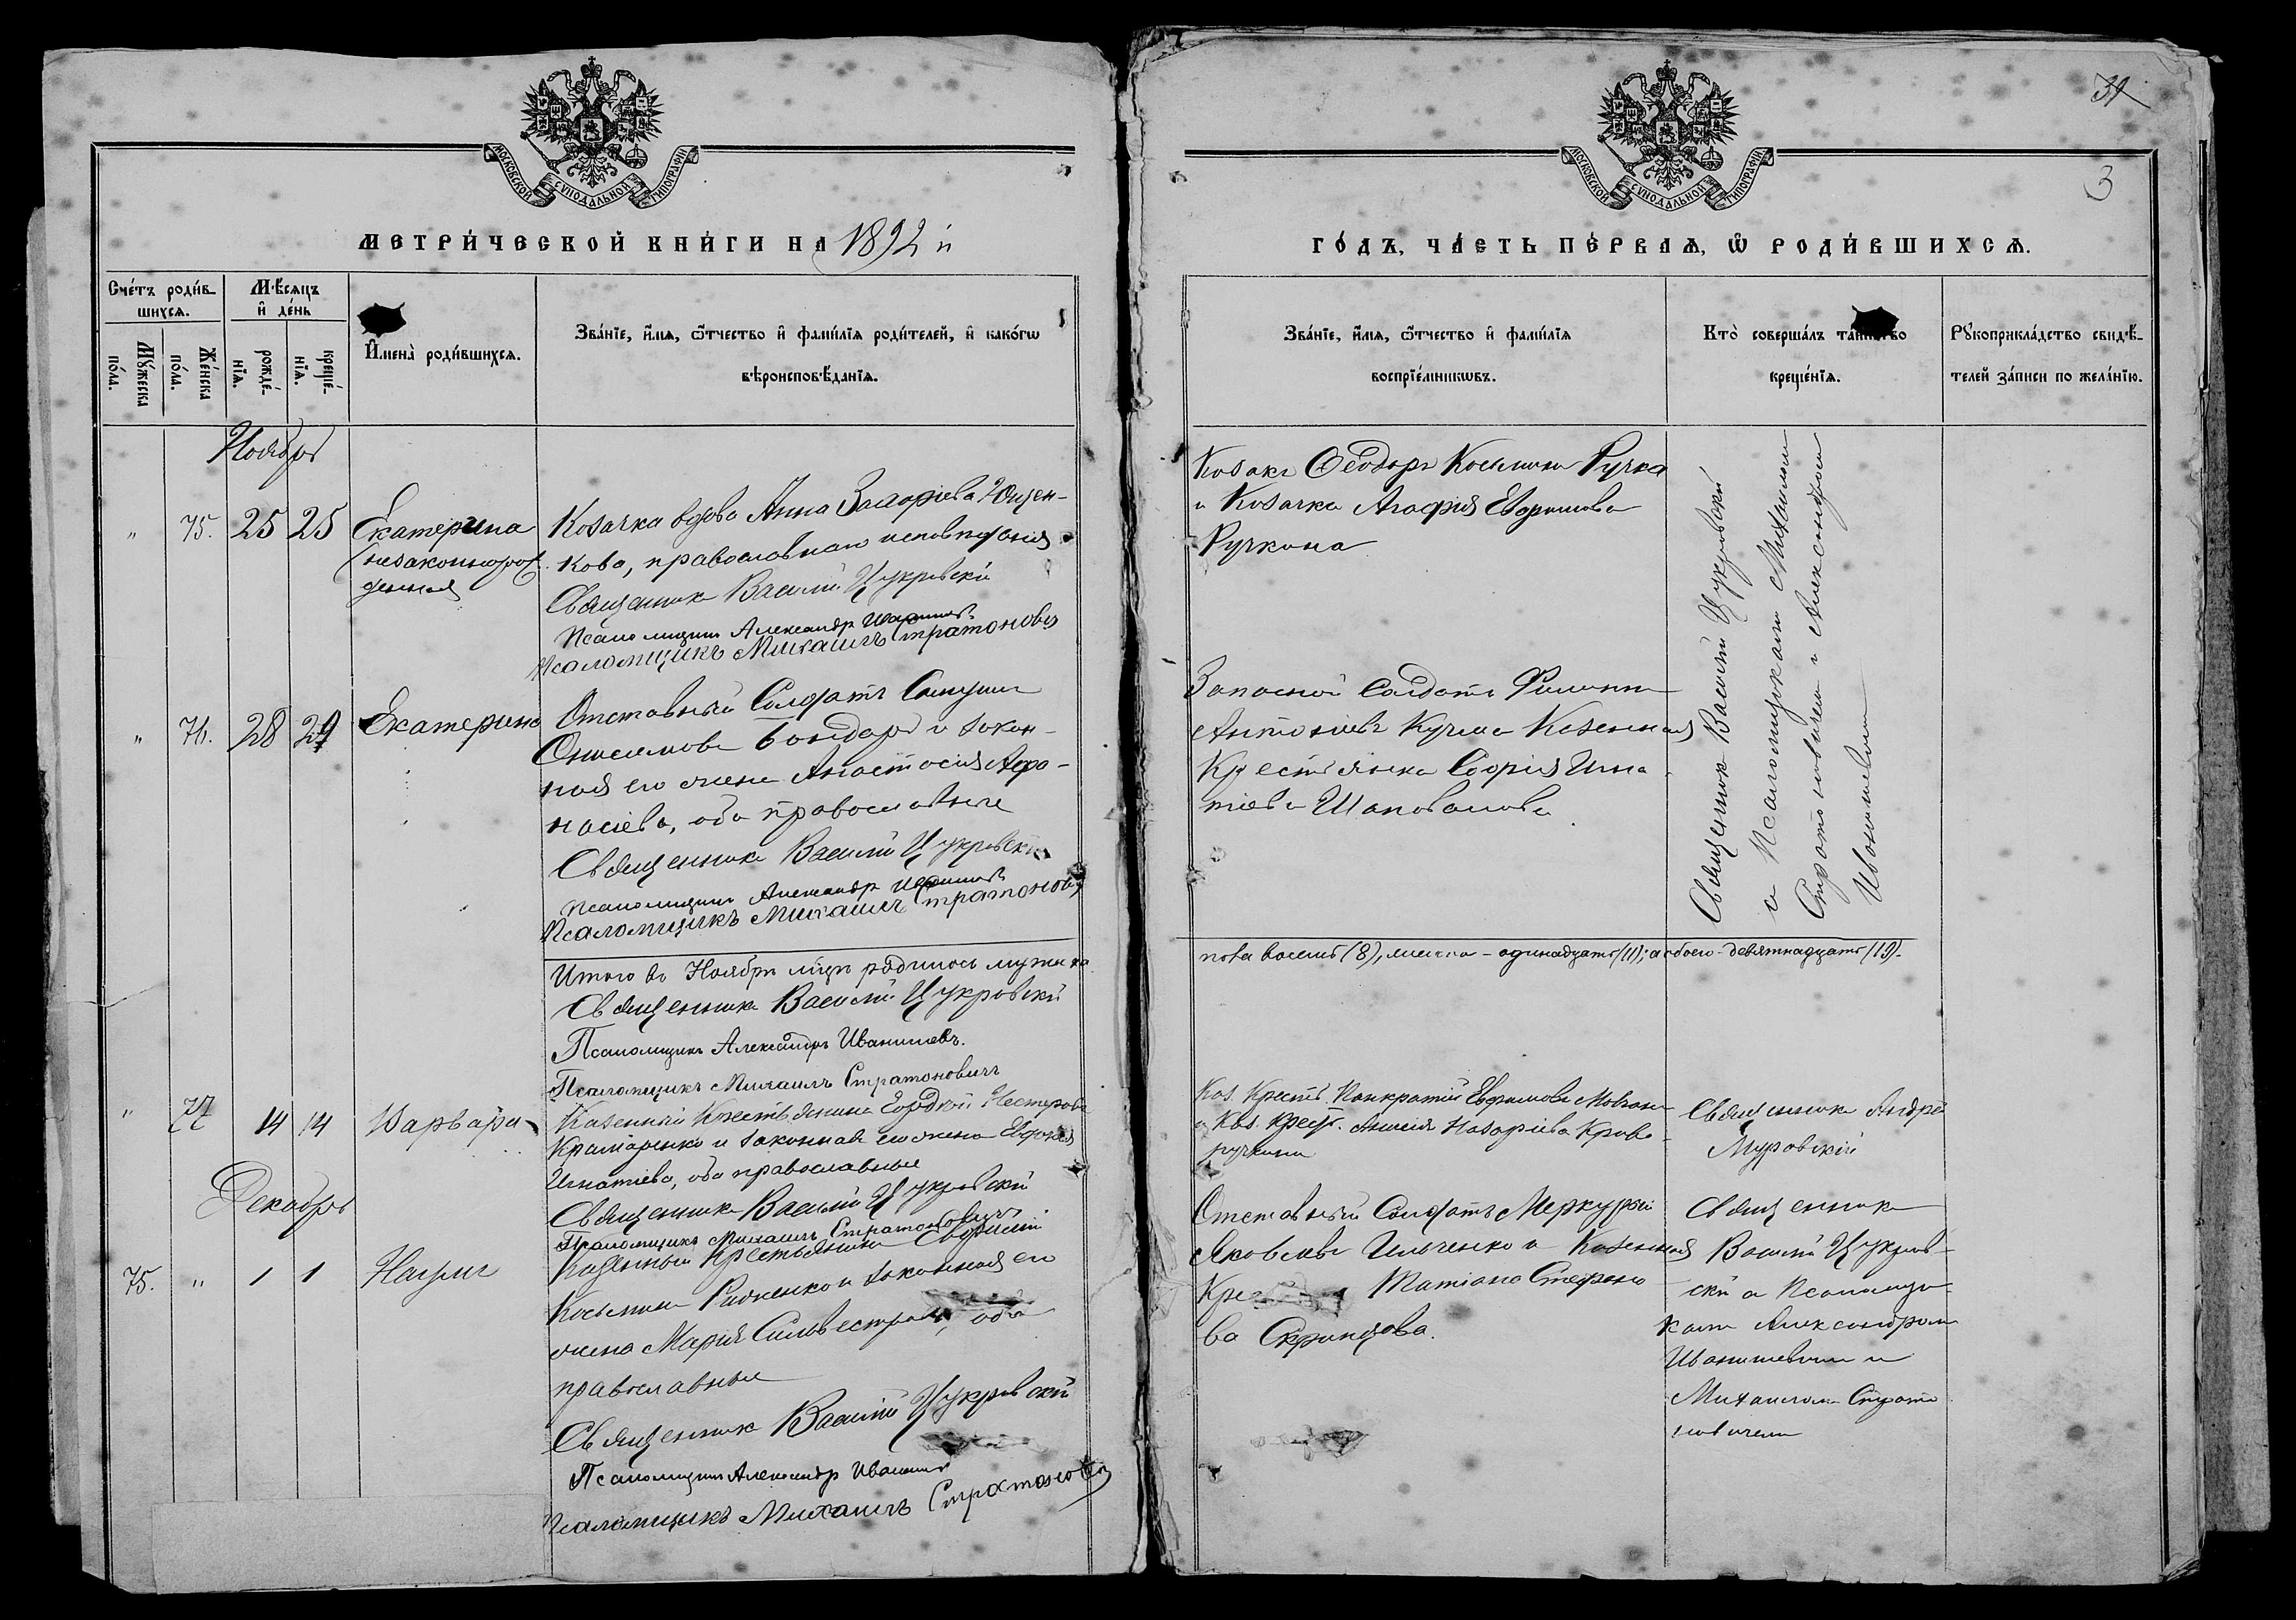 МОСКОВСКОЙ СѴНОДАЛЬНОЙ ТИПОГРАФІИ
МЕТРИ́ЧЕСКОЙ КНИ́ГИ НА 1892 й
Сче́тъ роди́в-
шихсѧ.
М҃ѣсѧцъ
и҆ де́нь
Мꙋ́жеска
по́ла.
Же́нска
по́ла.
рожде́-
нїѧ.
креще́-
нїѧ.
И҆мена̀ роди́вшихсѧ.
Зва́нїе, и҆́мѧ, ѻ҆́тчество и҆ фами́лїѧ роди́телей, и҆ како́гѡ
вѣроисповѣ́данїѧ.
Ноябрь
" 75. 25 25
Екатерина
незаконнорож
денная
Козачка вдова Анна Захаріева Ющен-
кова, православнаго исповѣданія
Священникъ Василій Цукровскій
Псаломщикъ Александръ Иванишевъ
Псаломщикъ Михаилъ Стратоновичъ
" 76. 28 29
Екатерина
Отставный Солдатъ
Бондарь и закон-
ная его жена Анастасія Афа-
насіева, оба православные
Священникъ Василій Цукровскій
Псаломщикъ Александръ Иванишевъ
Псаломщикъ Михаилъ Стратоновичъ
Итого въ Ноябрѣ мцѣ родилось мужска
Священникъ Василій Цукровскій
Псаломщикъ Александръ Иванишевъ.
Псаломщикъ Михаилъ Стратоновичъ
" 77 14 14
Варвара
Казенный Крестьянинъ Гордѣй Нестеровъ
Крамаренко и законная его жена Евдокія
Игнатіева, оба православные
Священникъ Василій Цукровскій
Псаломщикъ Михаилъ Стратоновичъ
Декабрь
75. " 1 1
Наумъ
Казенный Крестьянинъ Евфимій
Косьминъ и законная его
жена Марія Сильвестрова, оба
православные
Священникъ Василій Цукровскій
Псаломщикъ Александръ Иванишевъ
Псаломщикъ Михаилъ Стратоновичъ
31
3
МОСКОВСКОЙ СѴНОДАЛЬНОЙ ТИПОГРАФІИ
ГО́ДЪ, ЧА́СТЬ ПЕ́РВАѦ, Ѡ҆ РОДИ́ВШИХСѦ.
Зва́нїе, и҆́мѧ, ѻ҆́тчество и҆ фами́лїѧ
воспрїе́мникѡвъ.
Кто̀ соверша́лъ та́инство
креще́нїѧ.
Рꙋкоприкла́дство свидѣ́-
телей за́писи по жела́нїю.
Козакъ Ѳеодоръ Косьминъ Ручка
и Козачка Агафія Евфимова
Ручкина
Священник Василій Цукровскій
и Псаломщиками Михаиломъ
Стратоновичем и Александромъ
Иванишевымъ
Запасной Солдатъ Филиппъ
Антоніевъ Кучма Казенная
Крестьянка Софія Игна
тіева Шаповалова
пола восемь (8), женска - одинадцать (11); а обоего - девятнадцать (19).
Каз. Крест. Панкратій Евфимовъ Мовчанъ
и Каз. Крест. Назаріева Криво
ручкина
Священникъ Андрей
Муровскій
Отставный Солдатъ Меркурій
Яковлевъ Ильченко и Казенная
Кре Татіана Стефано
ва Скрипцова.
Священникъ
Василій Цукров-
скій и Псаломщи-
ками Александромъ
Иванишевымъ и
Михаиломъ Страто
новичемъ